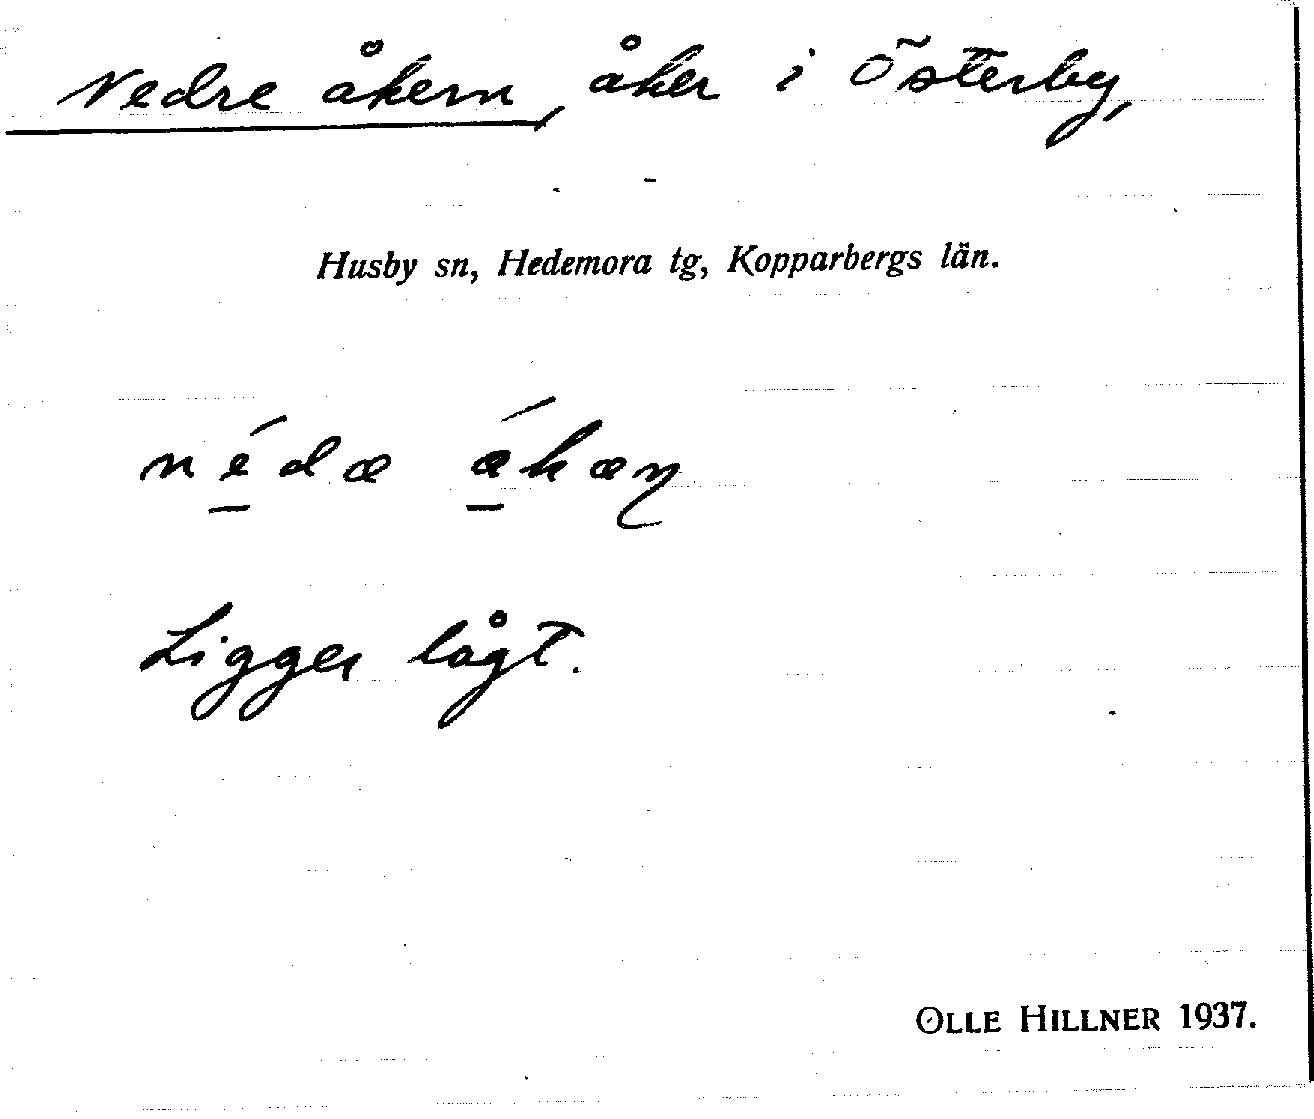 Nedre åkern, åker i Österby,
Husby sn, Hedemora tg, Kopparbergs län.
Ligger lågt.
OLLE HILLNER 1937.